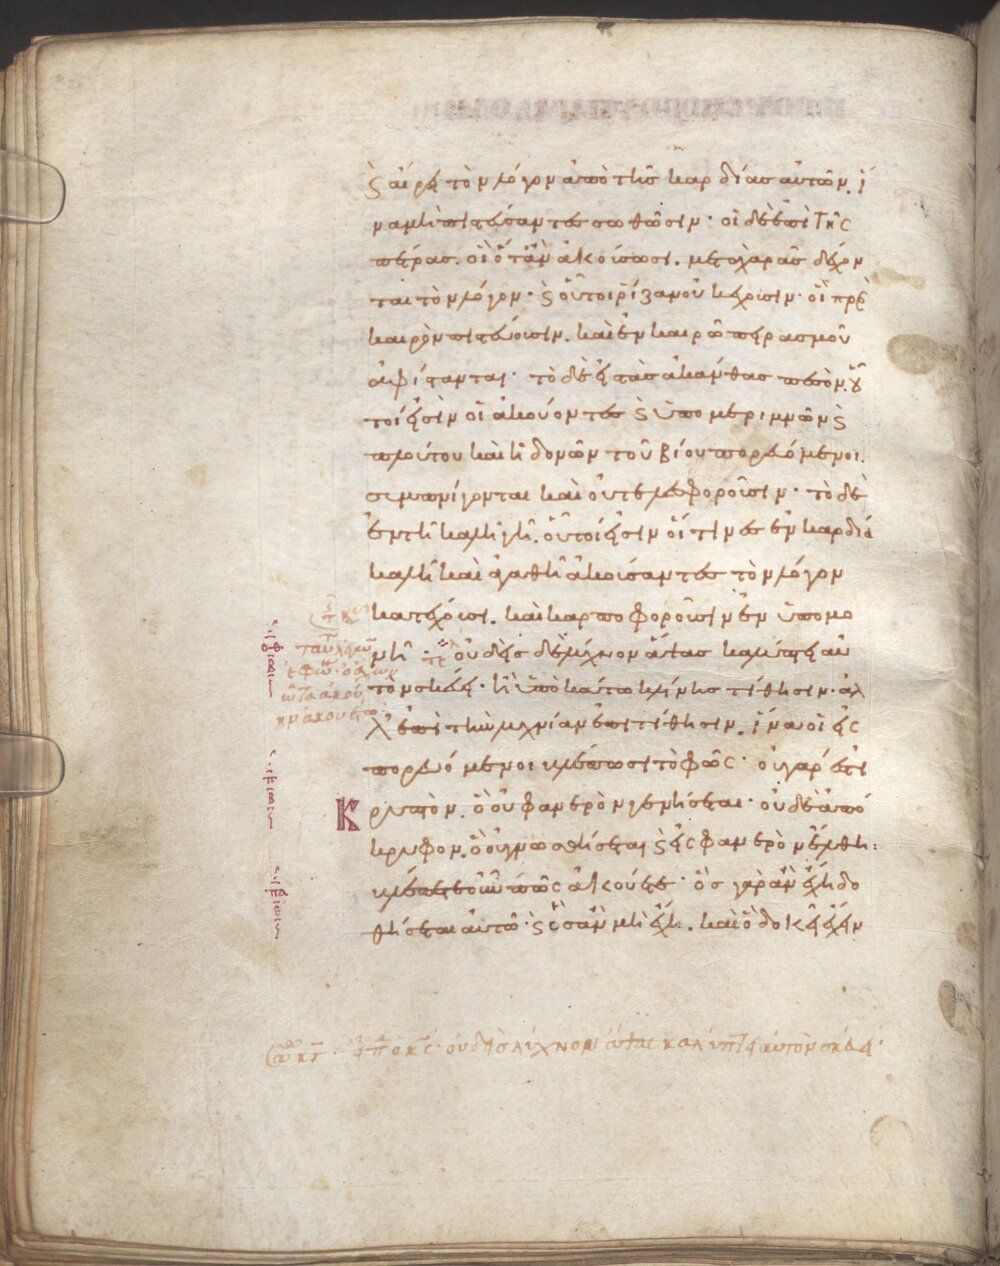 ϗ αἴρει τὸν λόγον ἀπὸ τῆς καρδίας αὐτῶν. ἵ
να μὴ πιστεύσαντες σωθῶσιν· οἱ δὲ ἐπὶ τῆς
πέτρας. οἳ ὅταν ἀκούσωσι. μετὰ χαρᾶς δέχον
ται τὸν λόγον· ϗ οὗτοι ῥίζαν οὐκ ἔχουσιν· οἳ πρὸς
καιρὸν πιστεύουσιν. καὶ ἐν καιρῶ πειρασμοῦ
ἀφίστανται· τὸ δὲ εἰς τὰς ἀκάνθας πεσὸν. οὗ
τοί εἰσὶν οἱ ἀκούοντες ϗ ὑπὸ μεριμνῶν ϗ
πλούτου καὶ ἡδονῶν τοῦ βίου πορευόμενοι.
συμπνίγονται καὶ οὐ τελεσφοροῦσιν· τὸ δὲ
ἐν τῆ καλῆ γῆ. οὗτοί εἰσιν οἵτινες ἐν καρδία
καλῆ καὶ ἀγαθῆ ἀκούσαντες τὸν λόγον
κατέχουσι. καὶ καρποφοροῦσιν ἐν ὑπομο
νῆ· οὐδεὶς δὲ λύχνον ἅψας καλύπτει αὐ
τὸν σκεύει· ἢ ὑποκάτω κλίνης τίθησιν· ἀλ
λ' ἐπὶ τὴν λυχνίαν ἐπιτίθησιν. ἵνα οἱ εἰς
πορευόμενοι βλέπωσι τὸ φῶς· οὐ γάρ ἐστι
Κρυπτὸν. ὃ οὐ φανερὸν γενήσεται· οὐδὲ ἀπό
κρυφον. ὃ οὐ γνωσθήσεται ϗ εἰς φανερὸν ἔλθη:
βλέπετε οὖν πῶς ἀκούετε· ὃς γὰρ ἂν ἔχη δο
θήσεται αὐτῶ· ϗ ὃς ἂν μὴ ἔχη. καὶ ὃ δοκεῖ ἔχειν
οὐδεὶς λύχνον ἅψας καλύπτει αὐτὸν σκεύει·